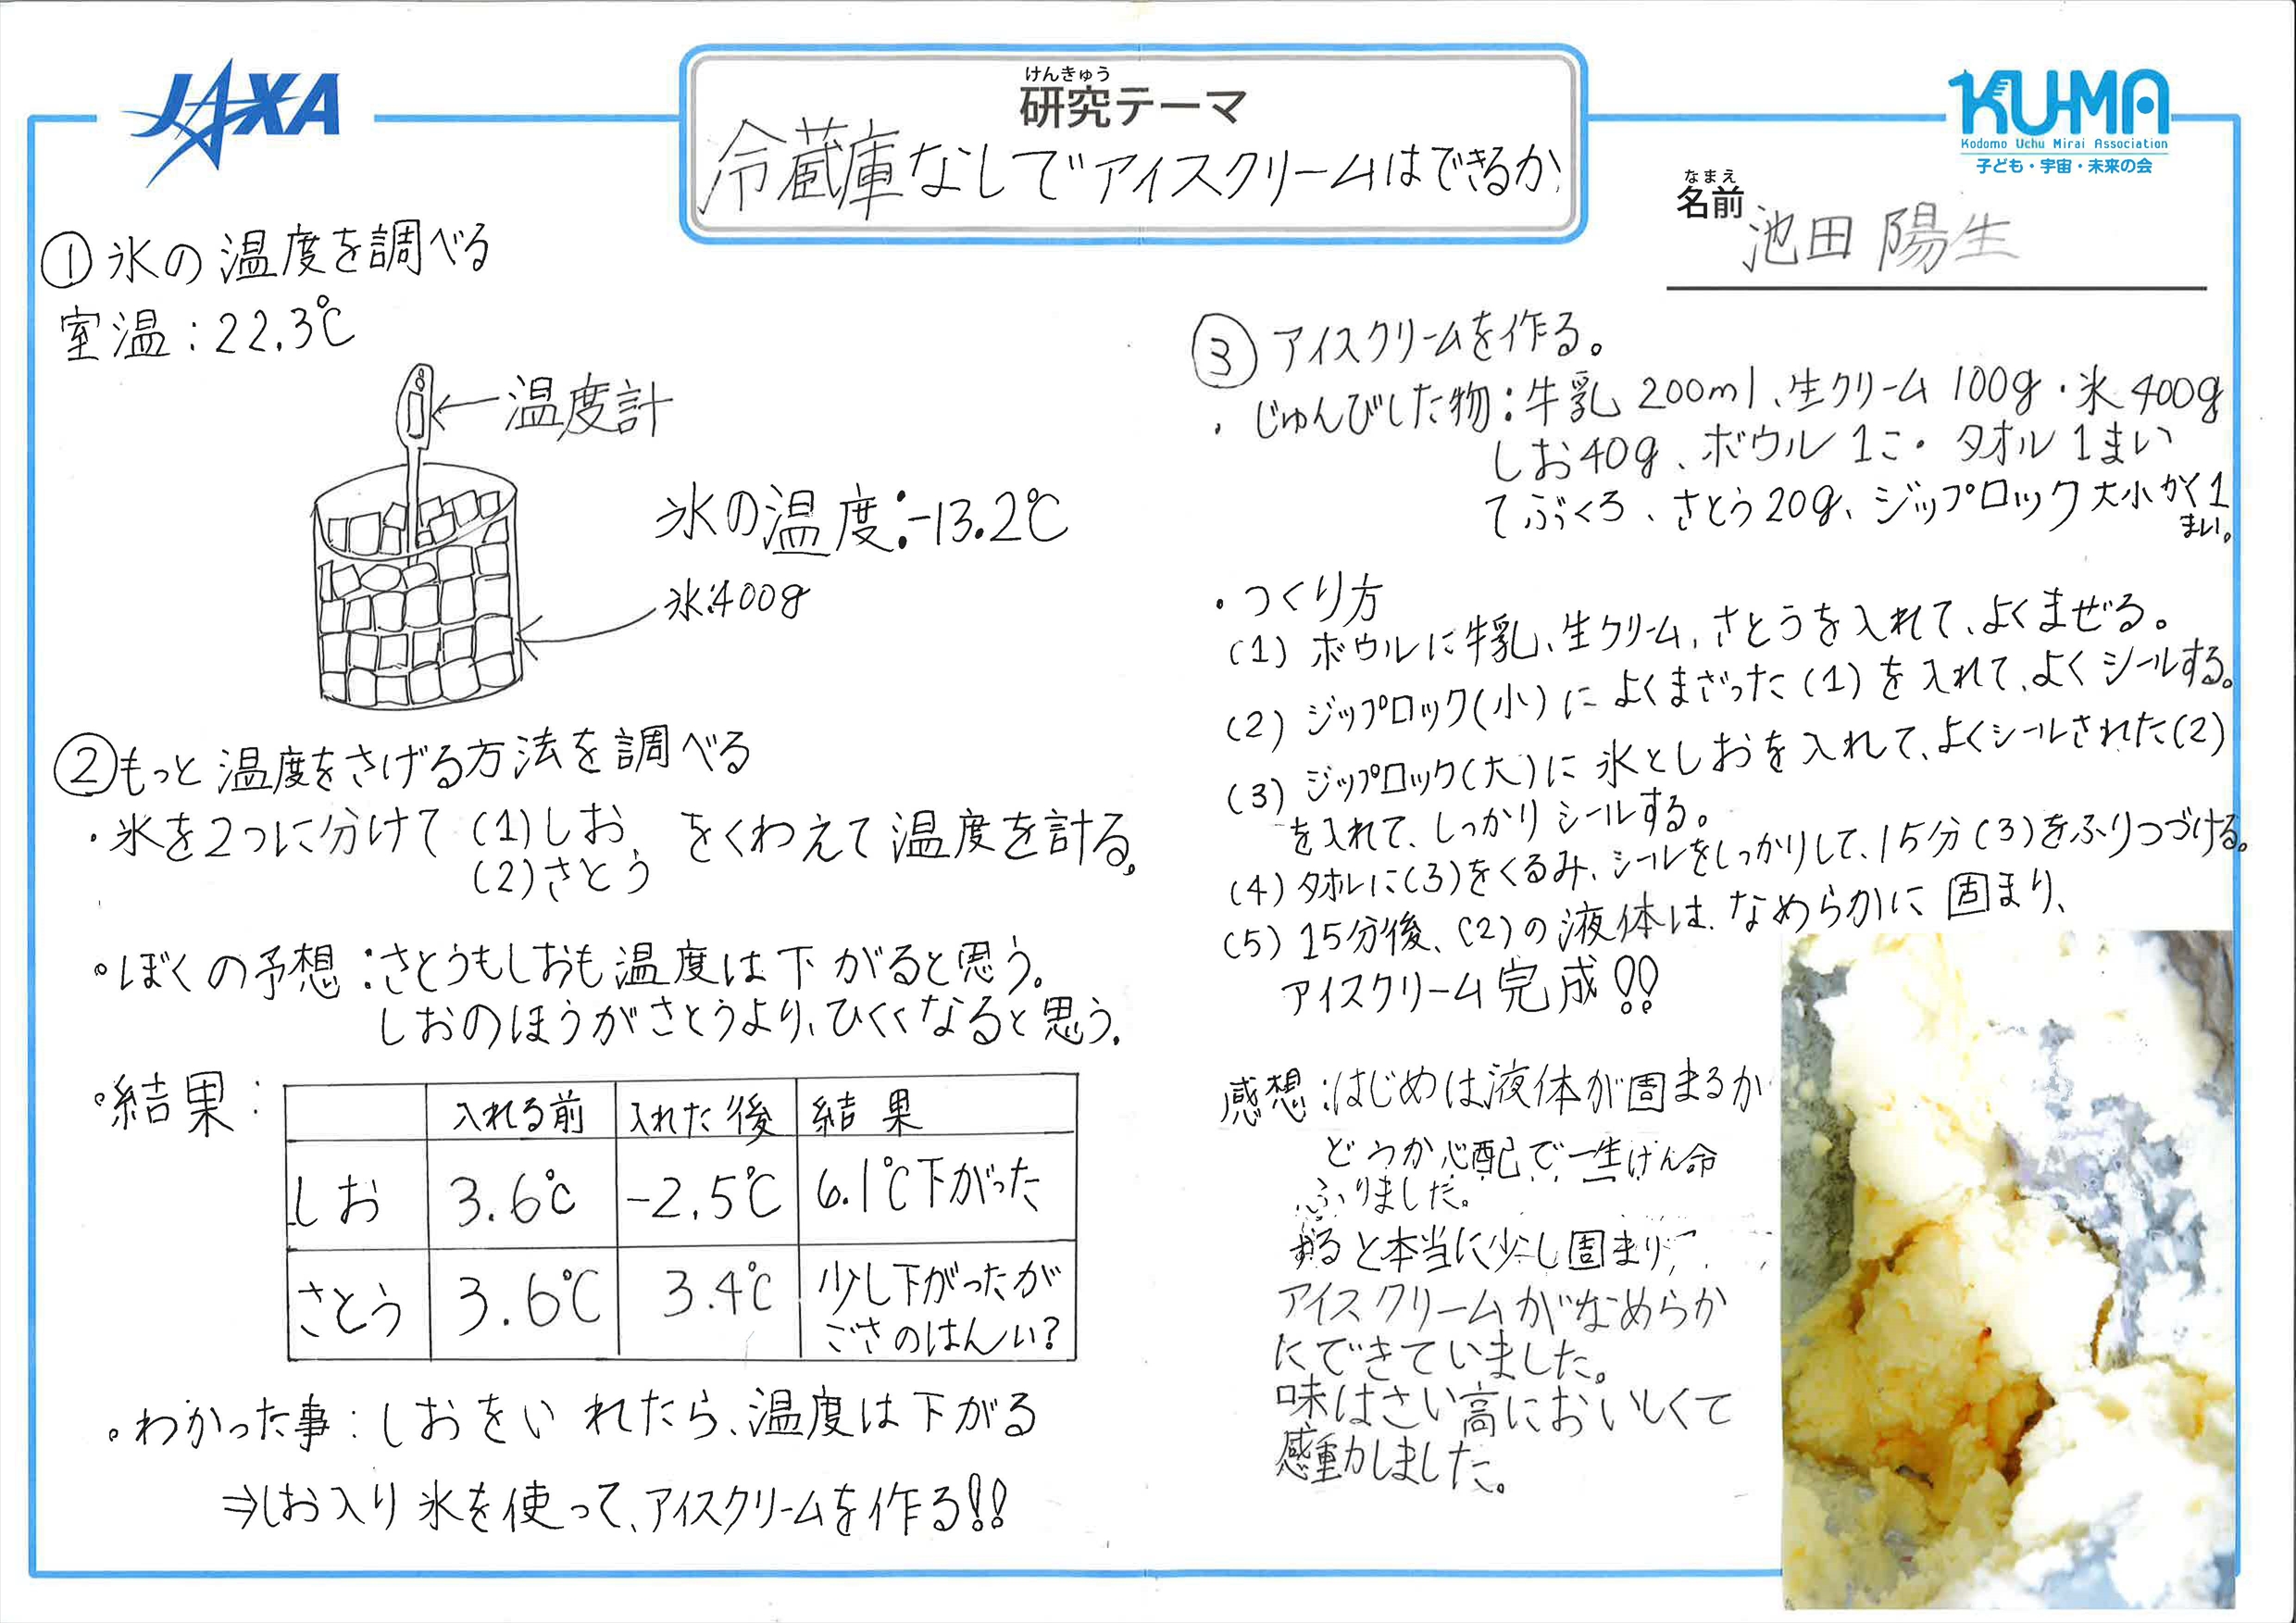 JAXA
けんきゅう
研究テーマ
冷蔵庫なしでアイスクリームはできるか
KU-MA
Kodomo Uchu Mirai Association
子ども・宇宙・未来の会
なまえ
名前
池田 陽生
①氷の温度を調べる
室温:22.3℃
←温度計
氷の温度:-13.2℃
氷:400g
②もっと温度をさげる方法を調べる
・氷を2つに分けて (1)しお をくわえて温度を計る。
(2)さとう
・ぼくの予想:さとうもしおも温度は下がると思う。
しおのほうがさとうより、ひくくなると思う。
・結果:
入れる前 入れた後 結果
しお 3.6℃ -2.5℃ 6.1℃下がった
さとう 3.6℃ 3.4℃ 少し下がったが
ごさのはんい?
・わかった事:しおをいれたら、温度は下がる
⇒しお入り氷を使って、アイスクリームを作る!!
③ アイスクリームを作る。
・じゅんびした物:牛乳 200ml、生クリーム 100g・氷 400g
しお40g、ボウル 1こ・タオル 1まい
てぶくろ、さとう20g、ジップロック大小かく1
まい。
・つくり方
(1) ボウルに牛乳、生クリーム、さとうを入れて、よくまぜる。
(2) ジップロック(小)によくまざった(1)を入れて、よくシールする。
(3) ジップロック(大)に氷としおを入れて、よくシールされた(2)
を入れて、しっかりシールする。
(4) タオルに(3)をくるみ、シールをしっかりして、15分(3)をふりつづける。
(5) 15分後、(2)の液体は、なめらかに固まり、
アイスクリーム完成!!
感想:はじめは液体が固まるか
どうか心配で一生けん命
ふりました。
すると本当に少し固まり、
アイスクリームがなめらか
にできていました。
味はさい高においしくて
感動しました。